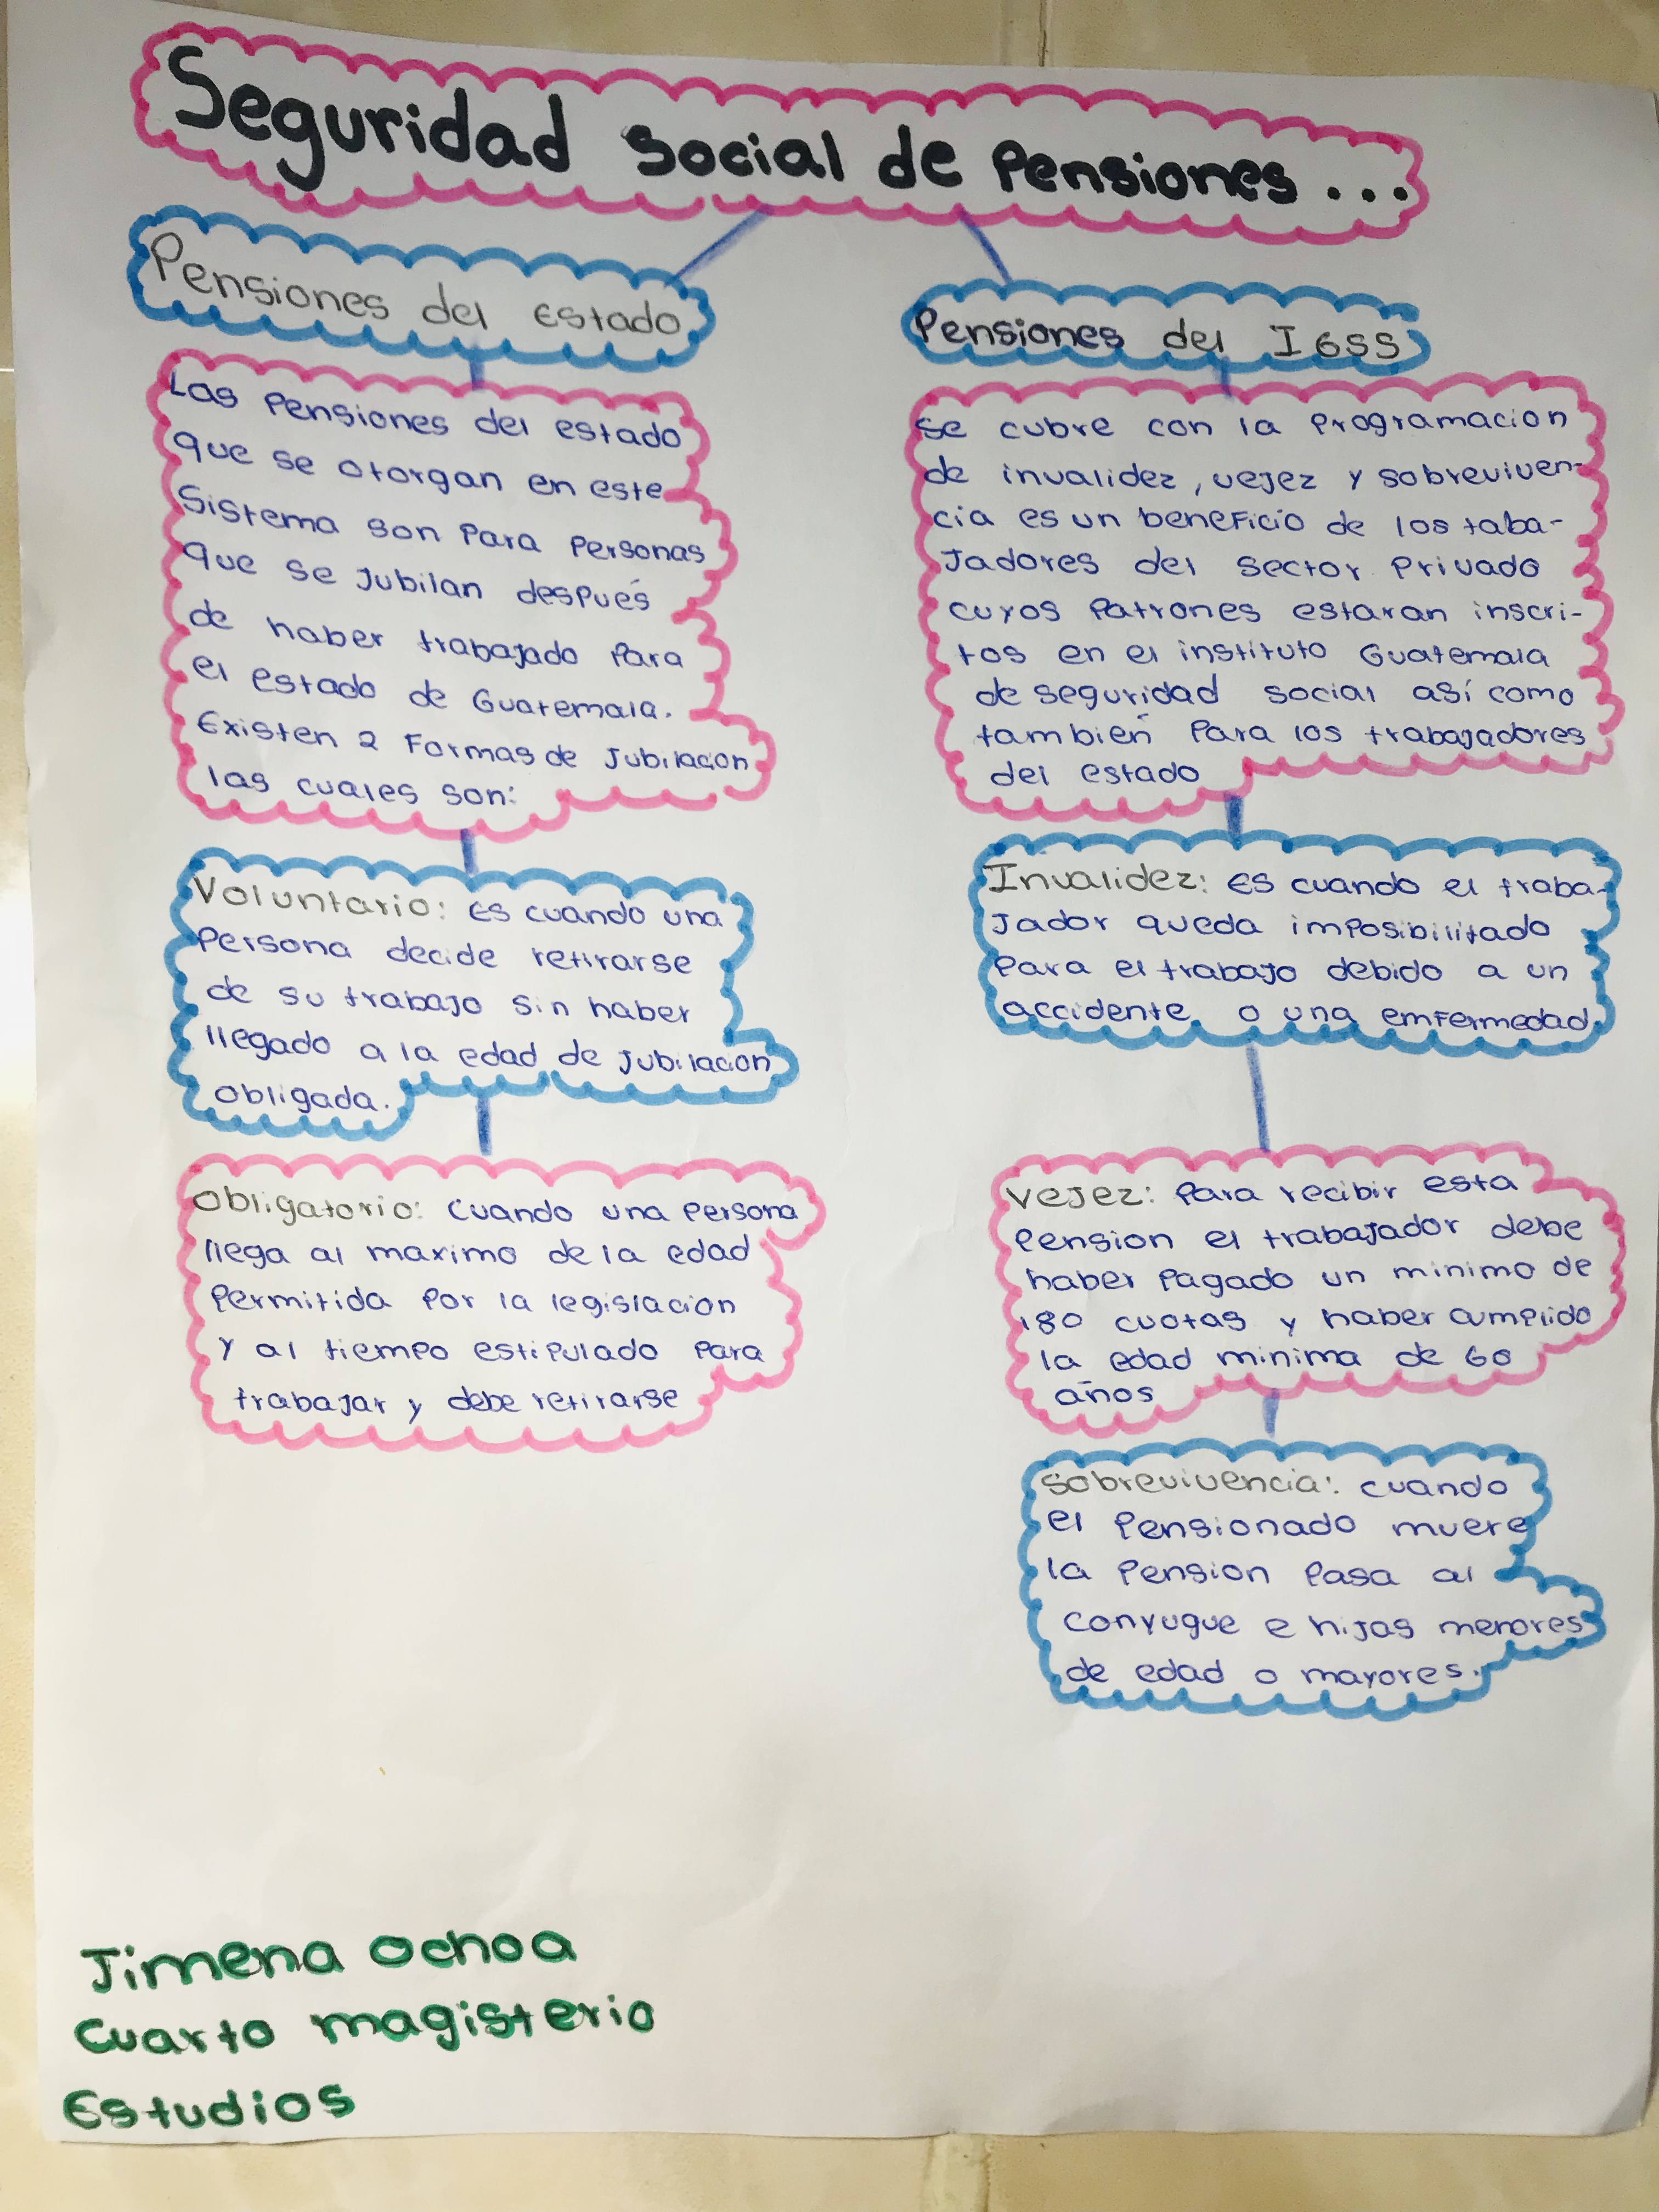 Seguridad social de Pensiones...
Pensiones del Estado
Las Pensiones del estado
que se otorgan en este
Sistema son Para Personas
que se Jubilan después
de haber trabajado Para
el estado de Guatemala.
Existen 2 Formas de Jubilacion
las cuales son:
Voluntario: Es cuando una
Persona decide retirarse
de su trabajo sin haber
llegado a la edad de Jubilacion
obligada.
Obligatorio: Cuando una Persona
llega al maximo de la edad
Permitida Por la legislacion
y al tiempo estipulado Para
trabajar y debe retirarse
Pensiones del IGSS
Se cubre con la Programacion
de invalidez, vejez y sobreviven-
cia es un beneficio de los taba-
Jadores del sector Privado
cuyos Patrones estaran inscri-
tos en el instituto Guatemala
de seguridad social así como
también Para los trabajadores
del estado
Invalidez: Es cuando el traba-
Jador queda imposibilitado
Para el trabajo debido a un
accidente o una emfermedad.
Vejez: Para recibir esta
Pension el trabajador debe
haber Pagado un minimo de
180 cuotas y haber cumplido
la edad minima de 60
años
Sobrevivencia: cuando
el Pensionado muere
la Pension Pasa al
conyugue e hijas menores
de edad o mayores.
Jimena Ochoa
Cuarto magisterio
Estudios